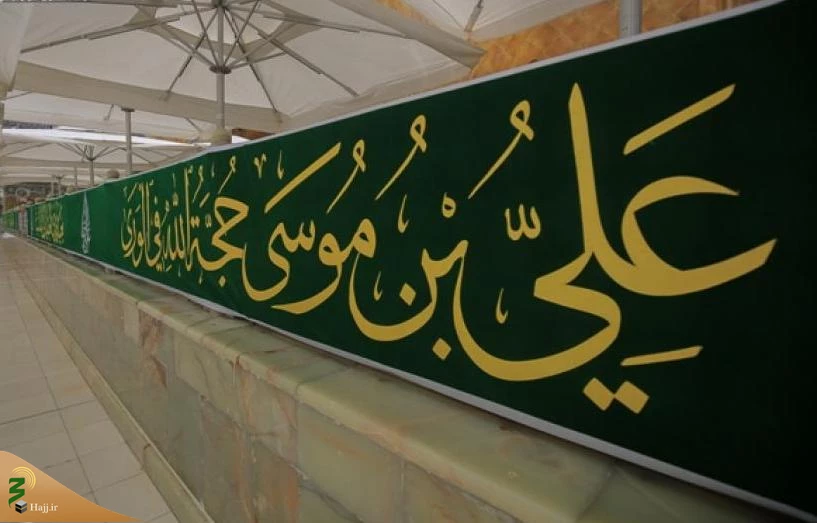 عَلِيِّ بْنِ مُوسَى حُجَّةُ اللّٰهِ فِي الْوَرَى
Hajj.ir